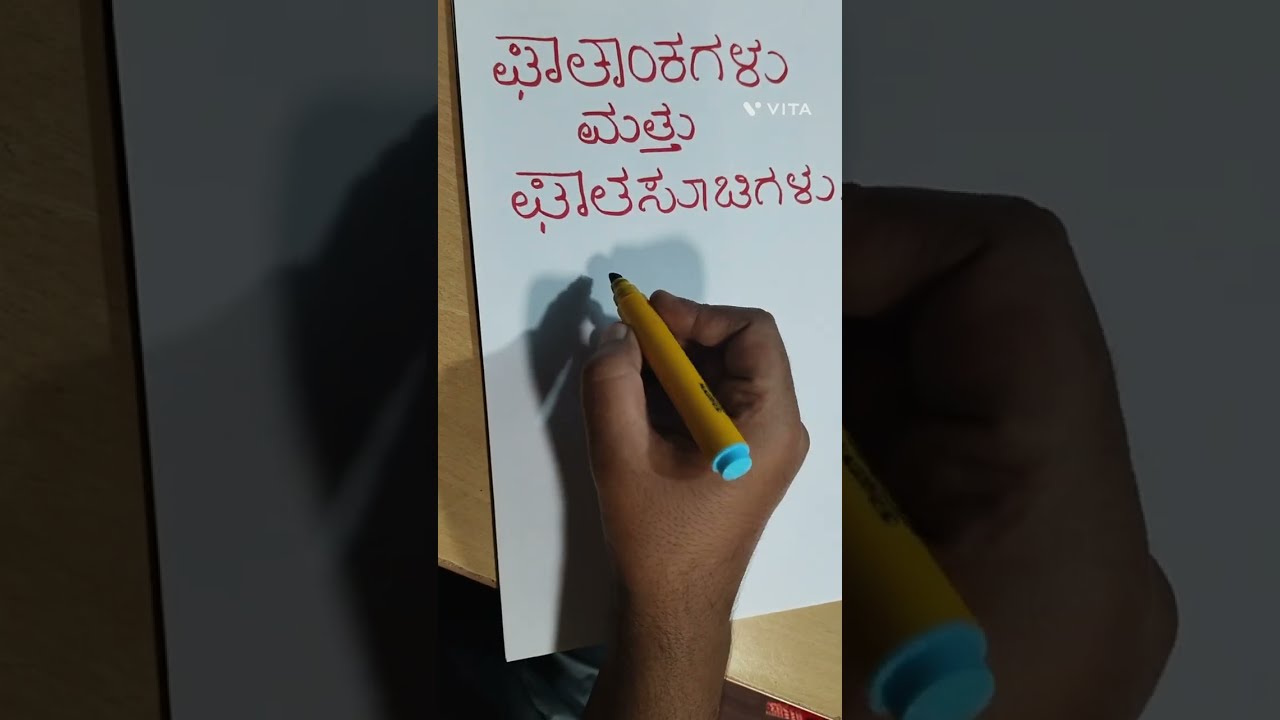 ಘಾತಾಂಕಗಳು
VITA
ಮತ್ತು
ಘಾತಸೂಚಿಗಳು.